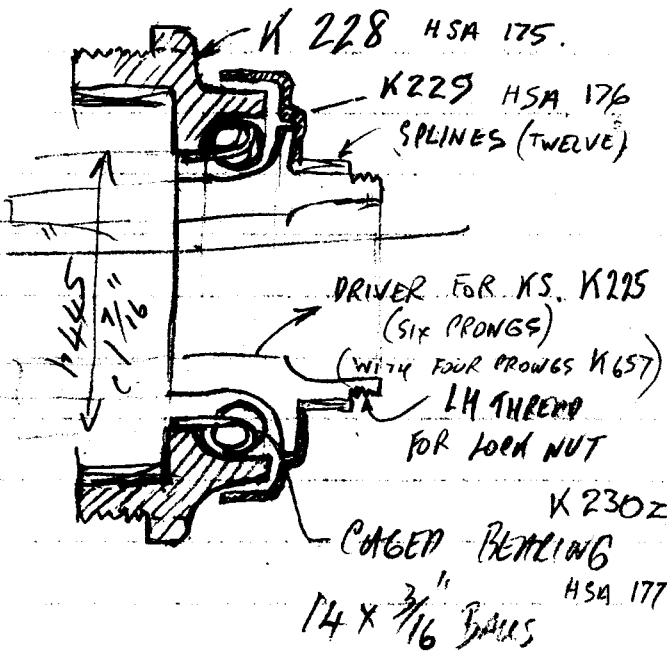 K 228 HSA 175.
K229 HSA 176
SPLINES (TWELVE)
DRIVER FOR KS. K225
(SIX PRONGS)
(WITH FOUR PRONGS K657)
LH THREAD
FOR LOCK NUT
K 230Z
CAGED BEARING
HSA 177
14 X 3/16" BALLS
1.445"
C 1 7/16"